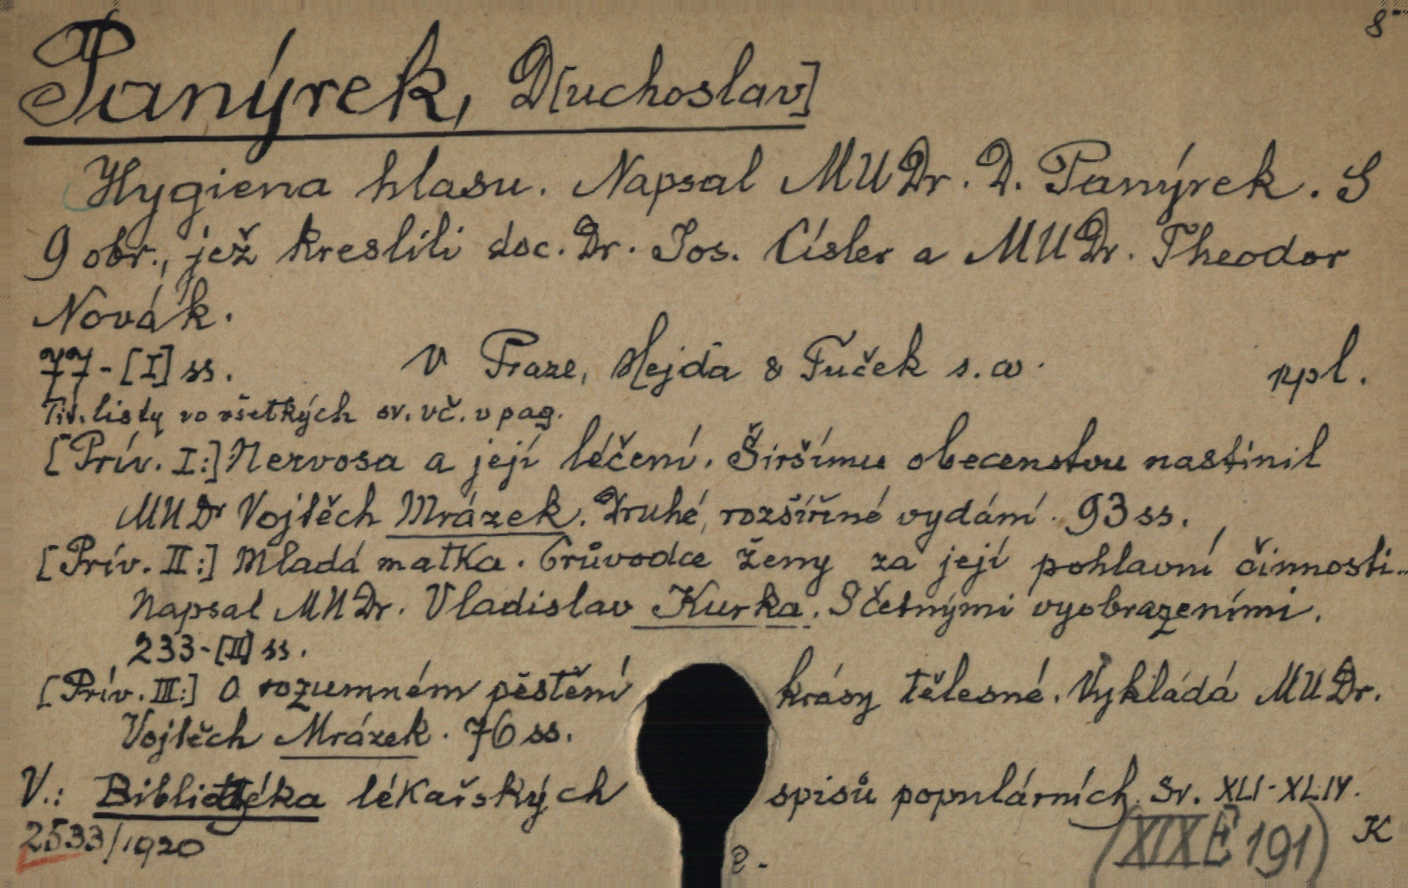 8°
Panýrek, D[uchoslav]
Hygiena hlasu. Napsal MUDr. D. Panýrek. S
9 obr., jež kreslili doc. Dr. Jos. Císler a MUDr. Theodor
Novák.
77-[I] ss. V Praze, Hejda & Tuček s.a. ppl.
Tit. listy vo všetkých sv. vč. v pag.
[Prív. I:] Nervosa a její léčení. Širšímu obecenstvu nastínil
MUDr Vojtěch Mrázek. Druhé, rozšířiné vydání. 93 ss.
[Prív. II:] Mladá matka. Průvodce ženy za její pohlavní činnosti.
Napsal MUDr. Vladislav Kurka. S četnými vyobrazeními.
233-[III] ss.
[Prív. III:] O rozumném pěstění krásy tělesné. Vykládá MUDr.
Vojtěch Mrázek. 76 ss.
V.: Bibliotéka lékařských spisů populárních. Sv. XLI-XLIV.
2533/1920 (XIX E 191) K